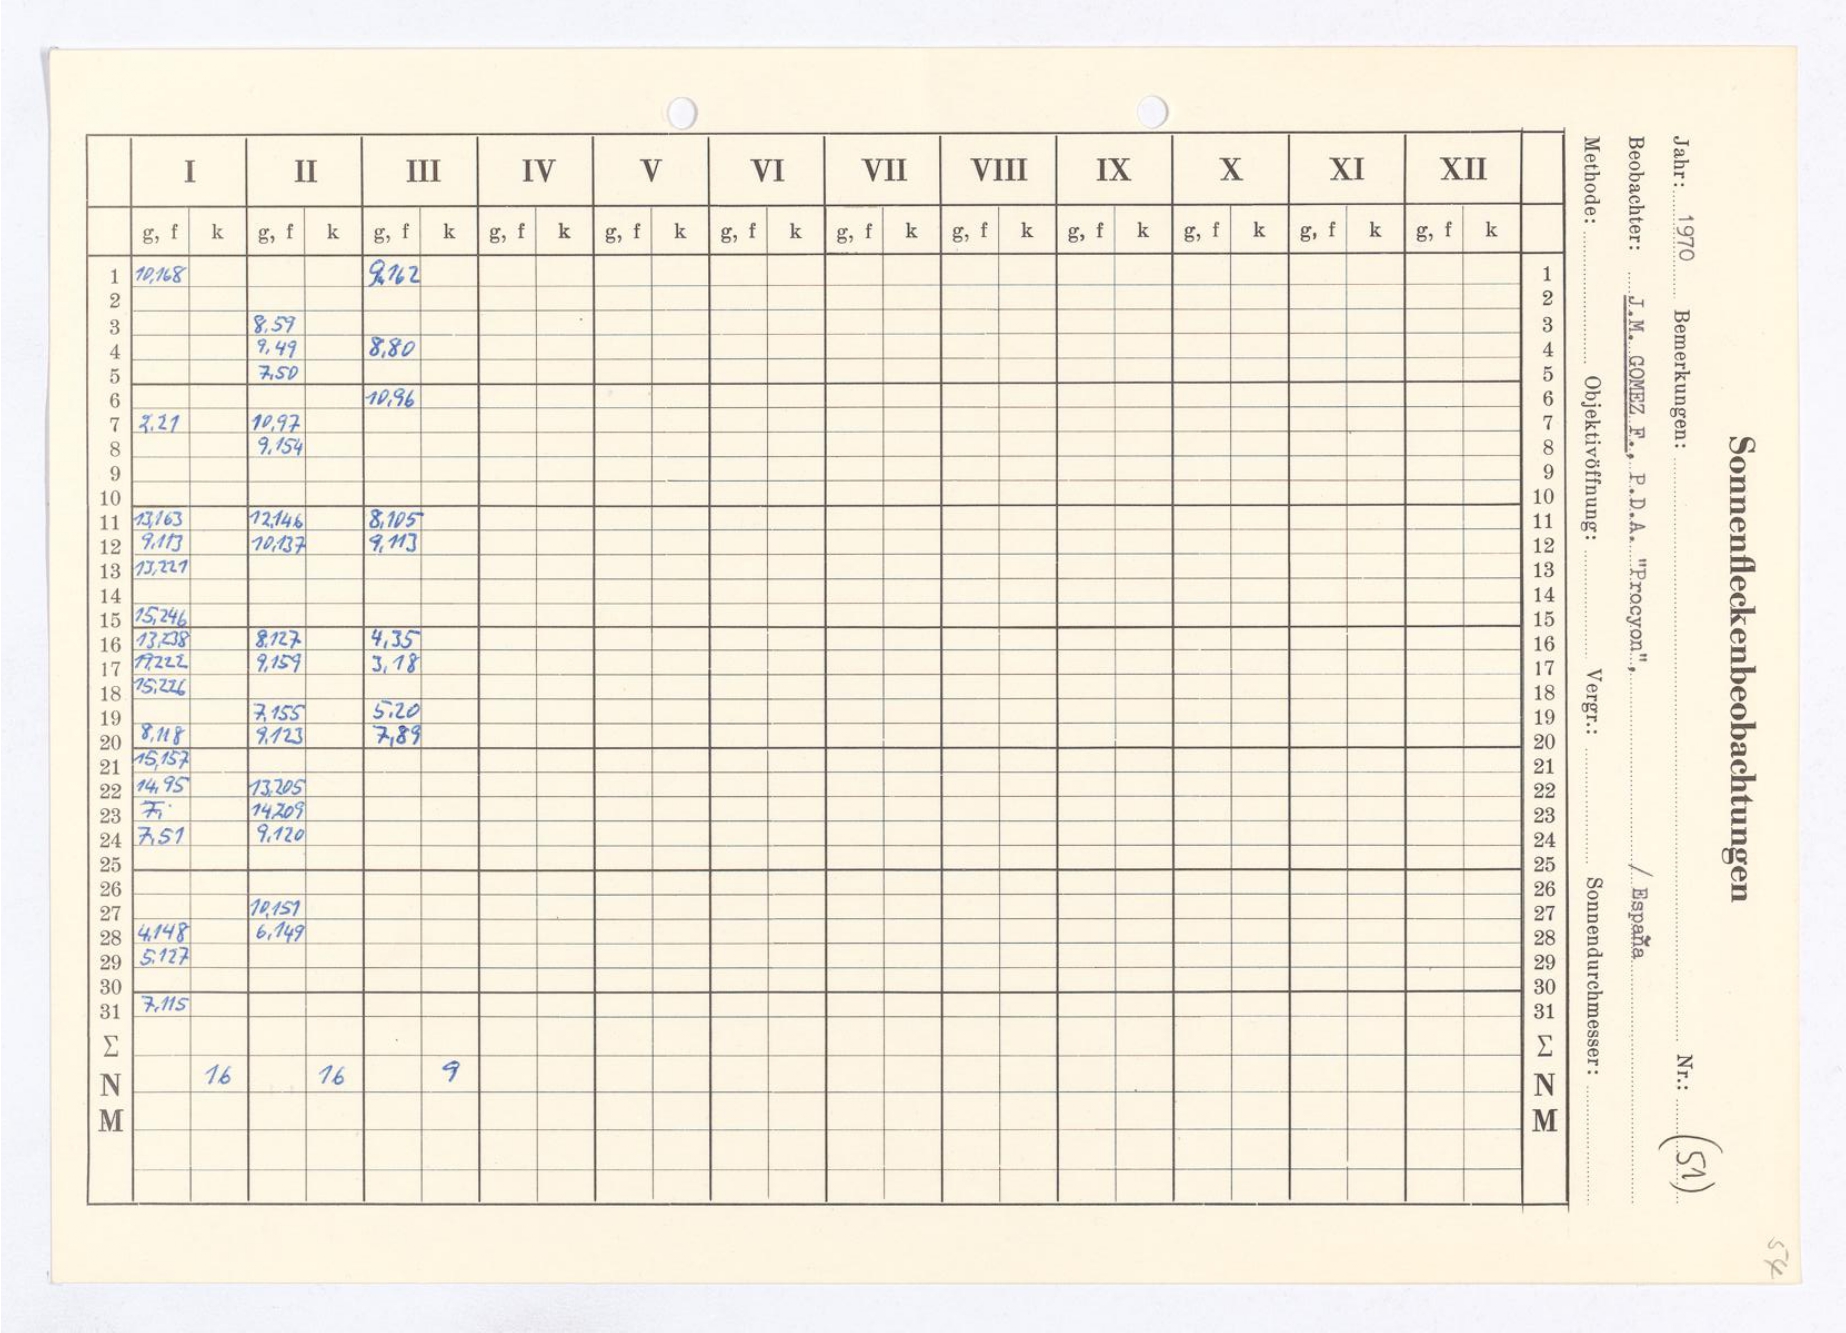 Sonnenfleckenbeobachtungen
Jahr: 1970 Bemerkungen: Nr.: (51)
Beobachter: J.M. GOMEZ F., P.D.A. "Procyon", / España
Methode: Objektivöffnung: Vergr.: Sonnendurchmesser:
I II III IV V VI VII VIII IX X XI XII
g, f k g, f k g, f k g, f k g, f k g, f k g, f k g, f k g, f k g, f k g, f k g, f k
1 10,168 9,162 1
2 2
3 8,59 3
4 9,49 8,80 4
5 7,50 5
6 10,96 6
7 2,21 10,97 7
8 9,154 8
9 9
10 10
11 13,163 12,146 8,105 11
12 9,113 10,137 9,113 12
13 13,221 13
14 14
15 15,246 15
16 13,238 8,127 4,35 16
17 9,159 3,18 17
18 15,226 18
19 7,155 5,20 19
20 8,118 9,123 7,89 20
21 15,157 21
22 14,95 13,205 22
23 7, 14,209 23
24 7,51 9,120 24
25 25
26 26
27 10,151 27
28 4,148 6,149 28
29 5,127 29
30 30
31 7,115 31
Σ Σ
N 16 16 9 N
M M